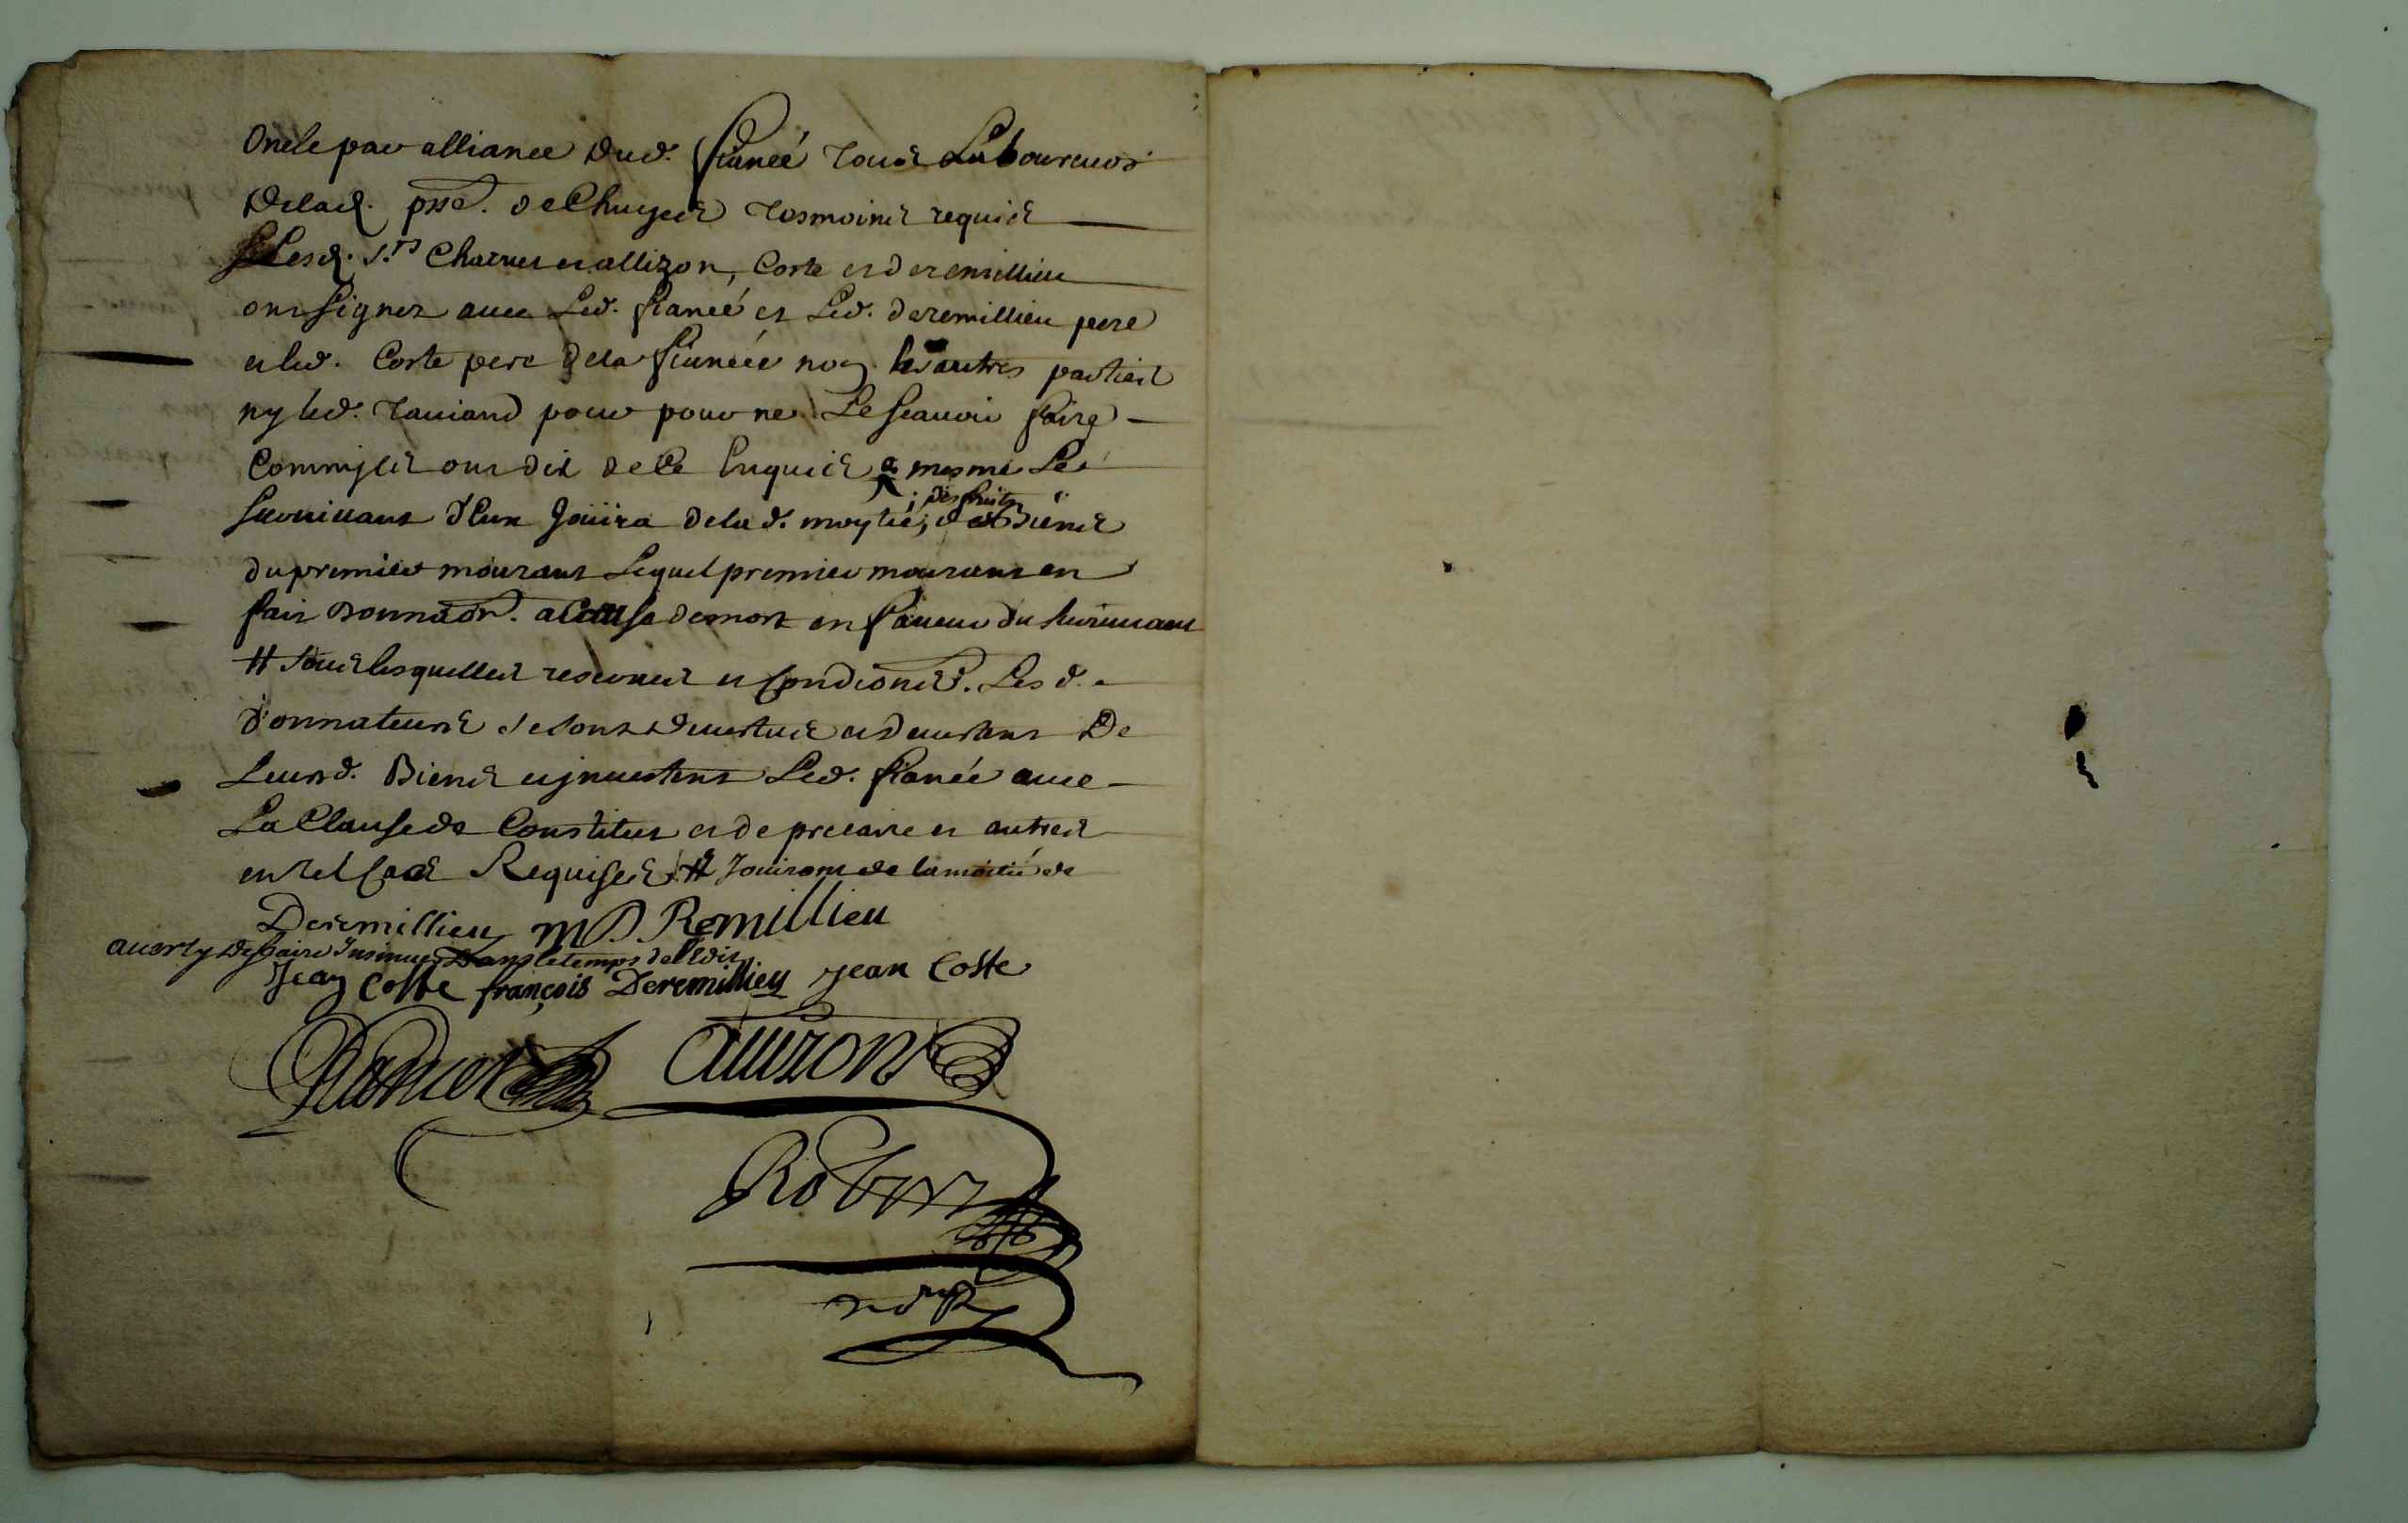 Oncle par alliance dud. fiancé tous Laboureurs
de lad. psse. de Chuyes tesmoins requis
Lesd. Srs. Charvet et allizon, Coste et deremillieu
ont signez avec Led. fiancé et Led. deremillieu pere
et led. Coste pere de la fiancée non les autres parties
ny led. pour pour ne Le scavoir faire
Commises ont dit de ce Enquis & mesme Le
survivant d'Eux Joüira de la d. moytié, des fruits des Biens
du premier mourant Lequel premier mourant en
fait donnaon. a Cause de mort en faveur du survivant
# sous lesquelles reserves et Condions. Les d.
donnateurs se sont devestus et devestent De
Leursd. Biens et jnvestent Led. fiancé avec
La Clause de Constitut et de precaire et autres
en tel Cas Requises # Jouiront de la moitié de
Deremillieu m D. Remillieu
averty de faire Insinuer Dans le temps de l'Edit
Jean Coste françois Deremillieu jean Coste
Charvet allizon
Robert